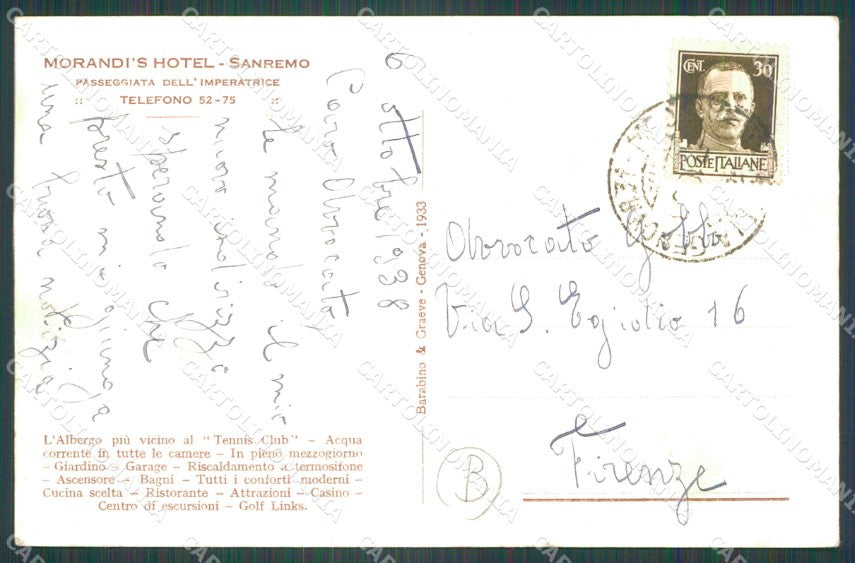 MORANDI'S HOTEL - SANREMO
PASSEGGIATA DELL'IMPERATRICE
:: TELEFONO 52-75 ::
6 ottobre 1938
Caro Avvocato,
le mando il mio
nuovo indirizzo
sperando che
presto mi giunga
una buona notizia
L'Albergo più vicino al "Tennis Club" - Acqua
corrente in tutte le camere - In pieno mezzogiorno
- Giardino - Garage - Riscaldamento a termosifone
- Ascensore - Bagni - Tutti i conforti moderni -
Cucina scelta - Ristorante - Attrazioni - Casino -
Centro di escursioni - Golf Links.
Barabino & Graeve - Genova - 1933
CENT. 30
POSTE ITALIANE
Avvocato
Via S. Egidio 16
Firenze
B
CARTOLINOMANIA